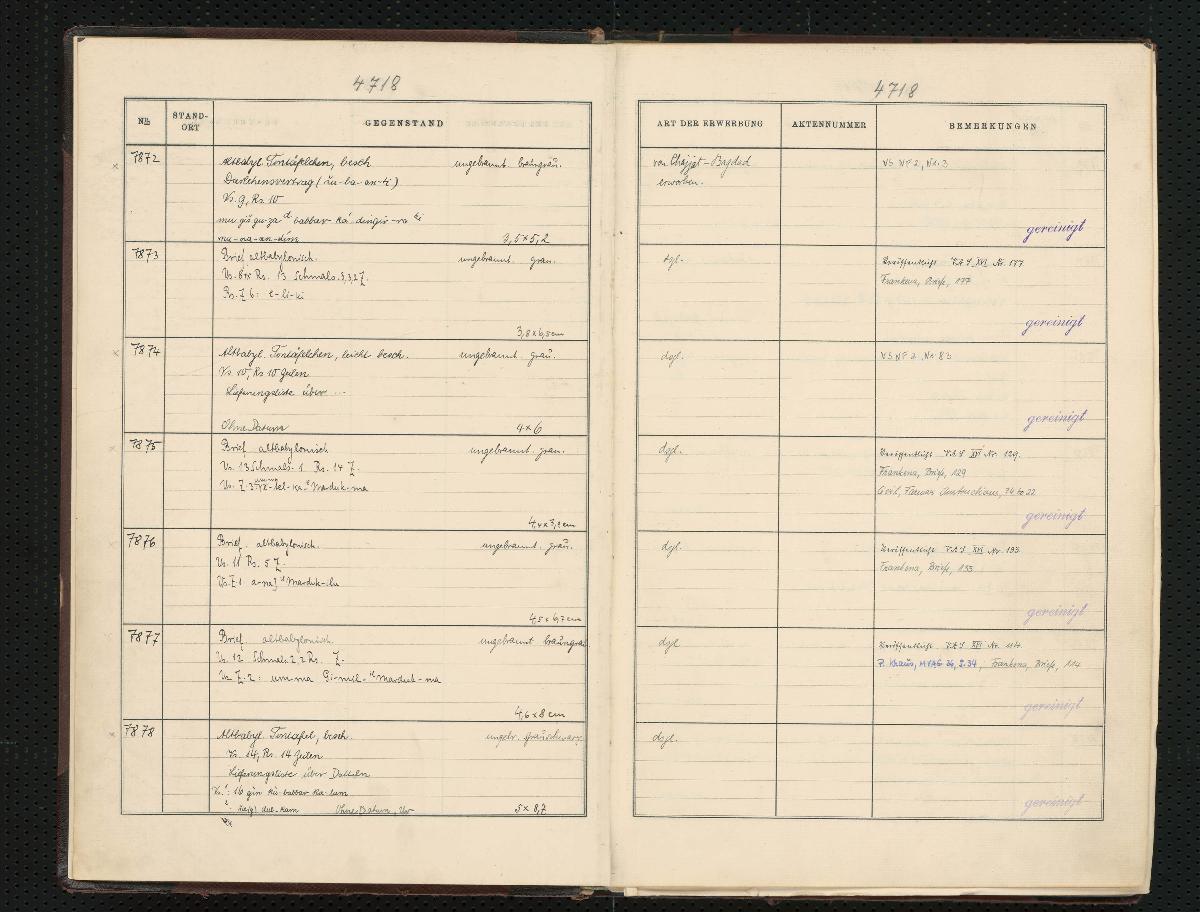 4718
4718
Nº STAND-ORT GEGENSTAND
ART DER ERWERBUNG AKTENNUMMER BEMERKUNGEN
7872 Altbabyl. Tontäfelchen, besch. ungebrannt braungrau.
Darlehensvertrag (šu-ba-an-ti)
Vs. 9, Rs. 10
mu giš gu-za d babbar ká-dingir-ra ki
mu-na-an-dím 3,5×5,2
von Chajjat-Bagdad
erworben.
VS NF 2, Nr. 3
gereinigt
7873 Brief altbabylonisch. ungebrannt. grau.
Vs. Rs. 13 Schmals. 3,3,2 Z.
Rs. Z 6: e-li-ki
3,8×6,5cm
dgl.
Veröffentlicht VAS XVI Nr. 177
Frankena, Briefe, 177
gereinigt
7874 Altbabyl. Tontäfelchen, leicht besch. ungebrannt. grau.
Vs. 10, Rs 10 Zeilen
Lieferungsliste über ...
Ohne Datum 4×6
dsgl.
VS NF 2, Nr. 83
gereinigt
7875 Brief altbabylonisch ungebrannt. grau.
Vs. 13 Schmals. 1 Rs. 14 Z.
Vs. Z. 3 Marduk-ma
dgl.
Veröffentlicht VAS XVI Nr. 129.
Frankena, Briefe, 129
gereinigt
7876 Brief. altbabylonisch. ungebrannt. grau.
Vs. 11 Rs. 5 Z.
Vs. Z 1 a-na Marduk-
4,5×6,7cm
dgl.
Veröffentlicht VAS XVI Nr. 193
Frankena, Briefe, 193
gereinigt
7877 Brief altbabylonisch. ungebrannt braungrau
Vs. 12 Schmals. 2,2 Rs. Z.
Vs Z. 2: um-ma Gi-mil-d Marduk-ma
4,6×8cm
dgl
Veröffentlicht VAS XVI Nr. 114
P. Kraus, MVAG 36, S. 34, Frankena, Briefe, 114
gereinigt
7878 Altbabyl. Tontafel, besch. ungebr. grauschwarz
Vs. 14, Rs. 14 Zeilen
Lieferungsliste über Datteln
Vs. 1: 16 gín kù-babbar ka-lum
Ohne Datum, 5×8,7
dsgl.
gereinigt